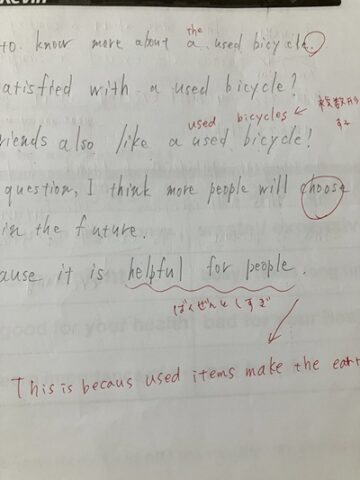 to know more about a used bicycle.
the
atisfied with a used bicycle?
used bicycles ← 複数形
riends also like a used bicycle!
question, I think more people will choose
in the future.
ause it is helpful for people.
ばくぜんとしすぎ
This is becaus used items make the eart